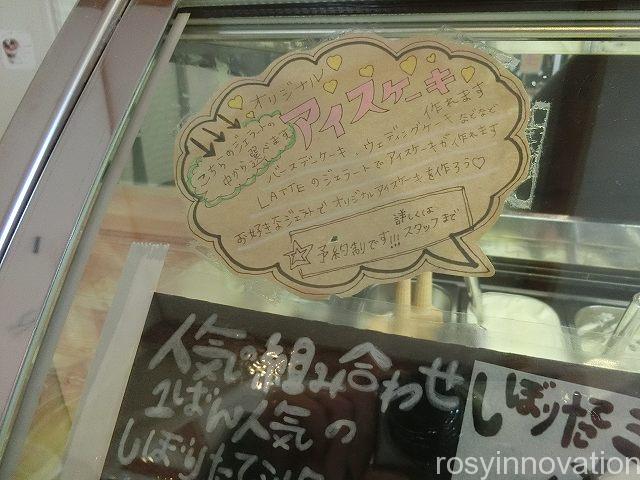 オリジナル
アイスケーキ
作れます
こちらのジェラートの
中から選べます
バースデーケーキ、ウェディングケーキなどなど
LATTEのジェラートでアイスケーキが作れます
お好きなジェラートでオリジナルアイスケーキを作ろう♡
詳しくは
☆予約制です!!!スタッフまで
人気の組み合わせ
1ばん人気の
しぼりたて
しぼりたて
rosyinnovation